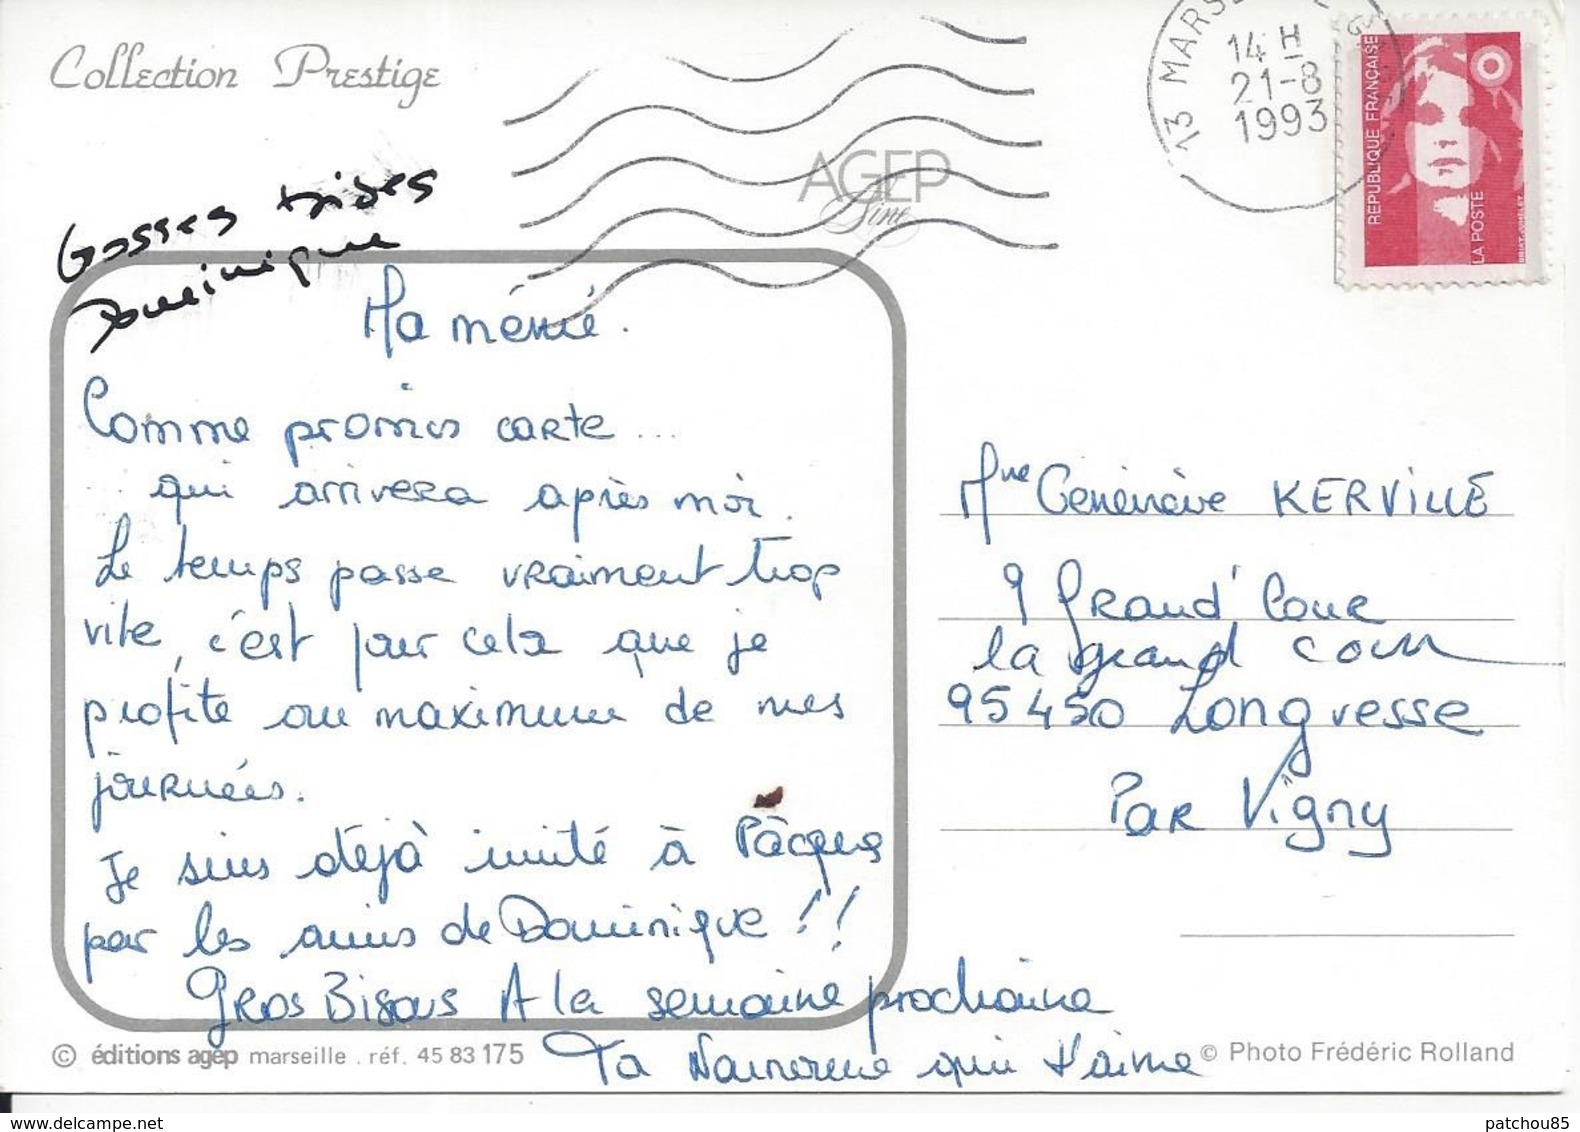 Collection Prestige
AGEP
13 MARSE
14 H
21-8
1993
REPUBLIQUE FRANÇAISE
LA POSTE
Gosses bises
Dominique
Ma mémé.
Comme promis carte...
.. qui arrivera après moi.
Le temps passe vraiment trop
vite, c'est pour cela que je
profite au maximum de mes
journées.
Je suis déjà invité à Pâcques
par les amis de Dominique !!
Gros Bisous A la semaine prochaine
Ta qui t'aime
Mme Geneviève KERVILLE
9 Grand' Cour
la grand cour
95450 Longvesse
Par Vigny
© éditions agep marseille . réf. 45 83 175
© Photo Frédéric Rolland
patchou85